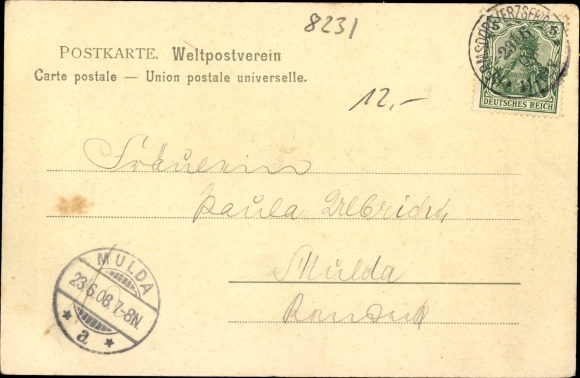 8231
POSTKARTE. Weltpostverein
Carte postale — Union postale universelle.
5 5
DEUTSCHES REICH
12,-
Fräulein
Paula Ulbricht
Mulda
MULDA
23.6.08. 7-8N.
* a *